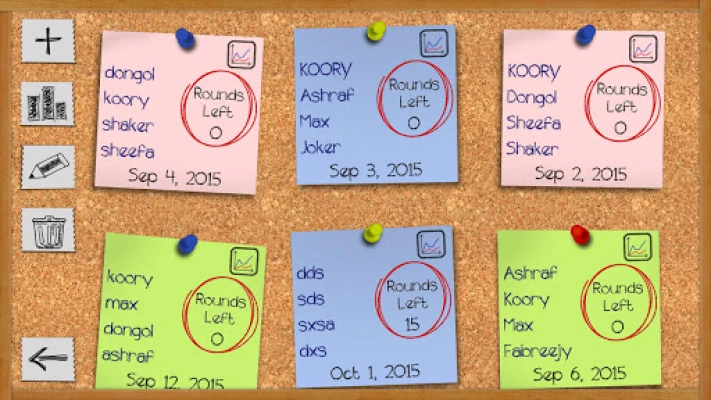 dongol
koory
shaker
sheefa
Rounds
Left
0
Sep 4, 2015
KOORY
Ashraf
Max
Joker
Rounds
Left
0
Sep 3, 2015
KOORY
Dongol
Sheefa
Shaker
Rounds
Left
0
Sep 2, 2015
koory
max
dongol
ashraf
Rounds
Left
0
Sep 12, 2015
dds
sds
sxsa
dxs
Rounds
Left
15
Oct 1, 2015
Ashraf
Koory
Max
Fabreejy
Rounds
Left
0
Sep 6, 2015